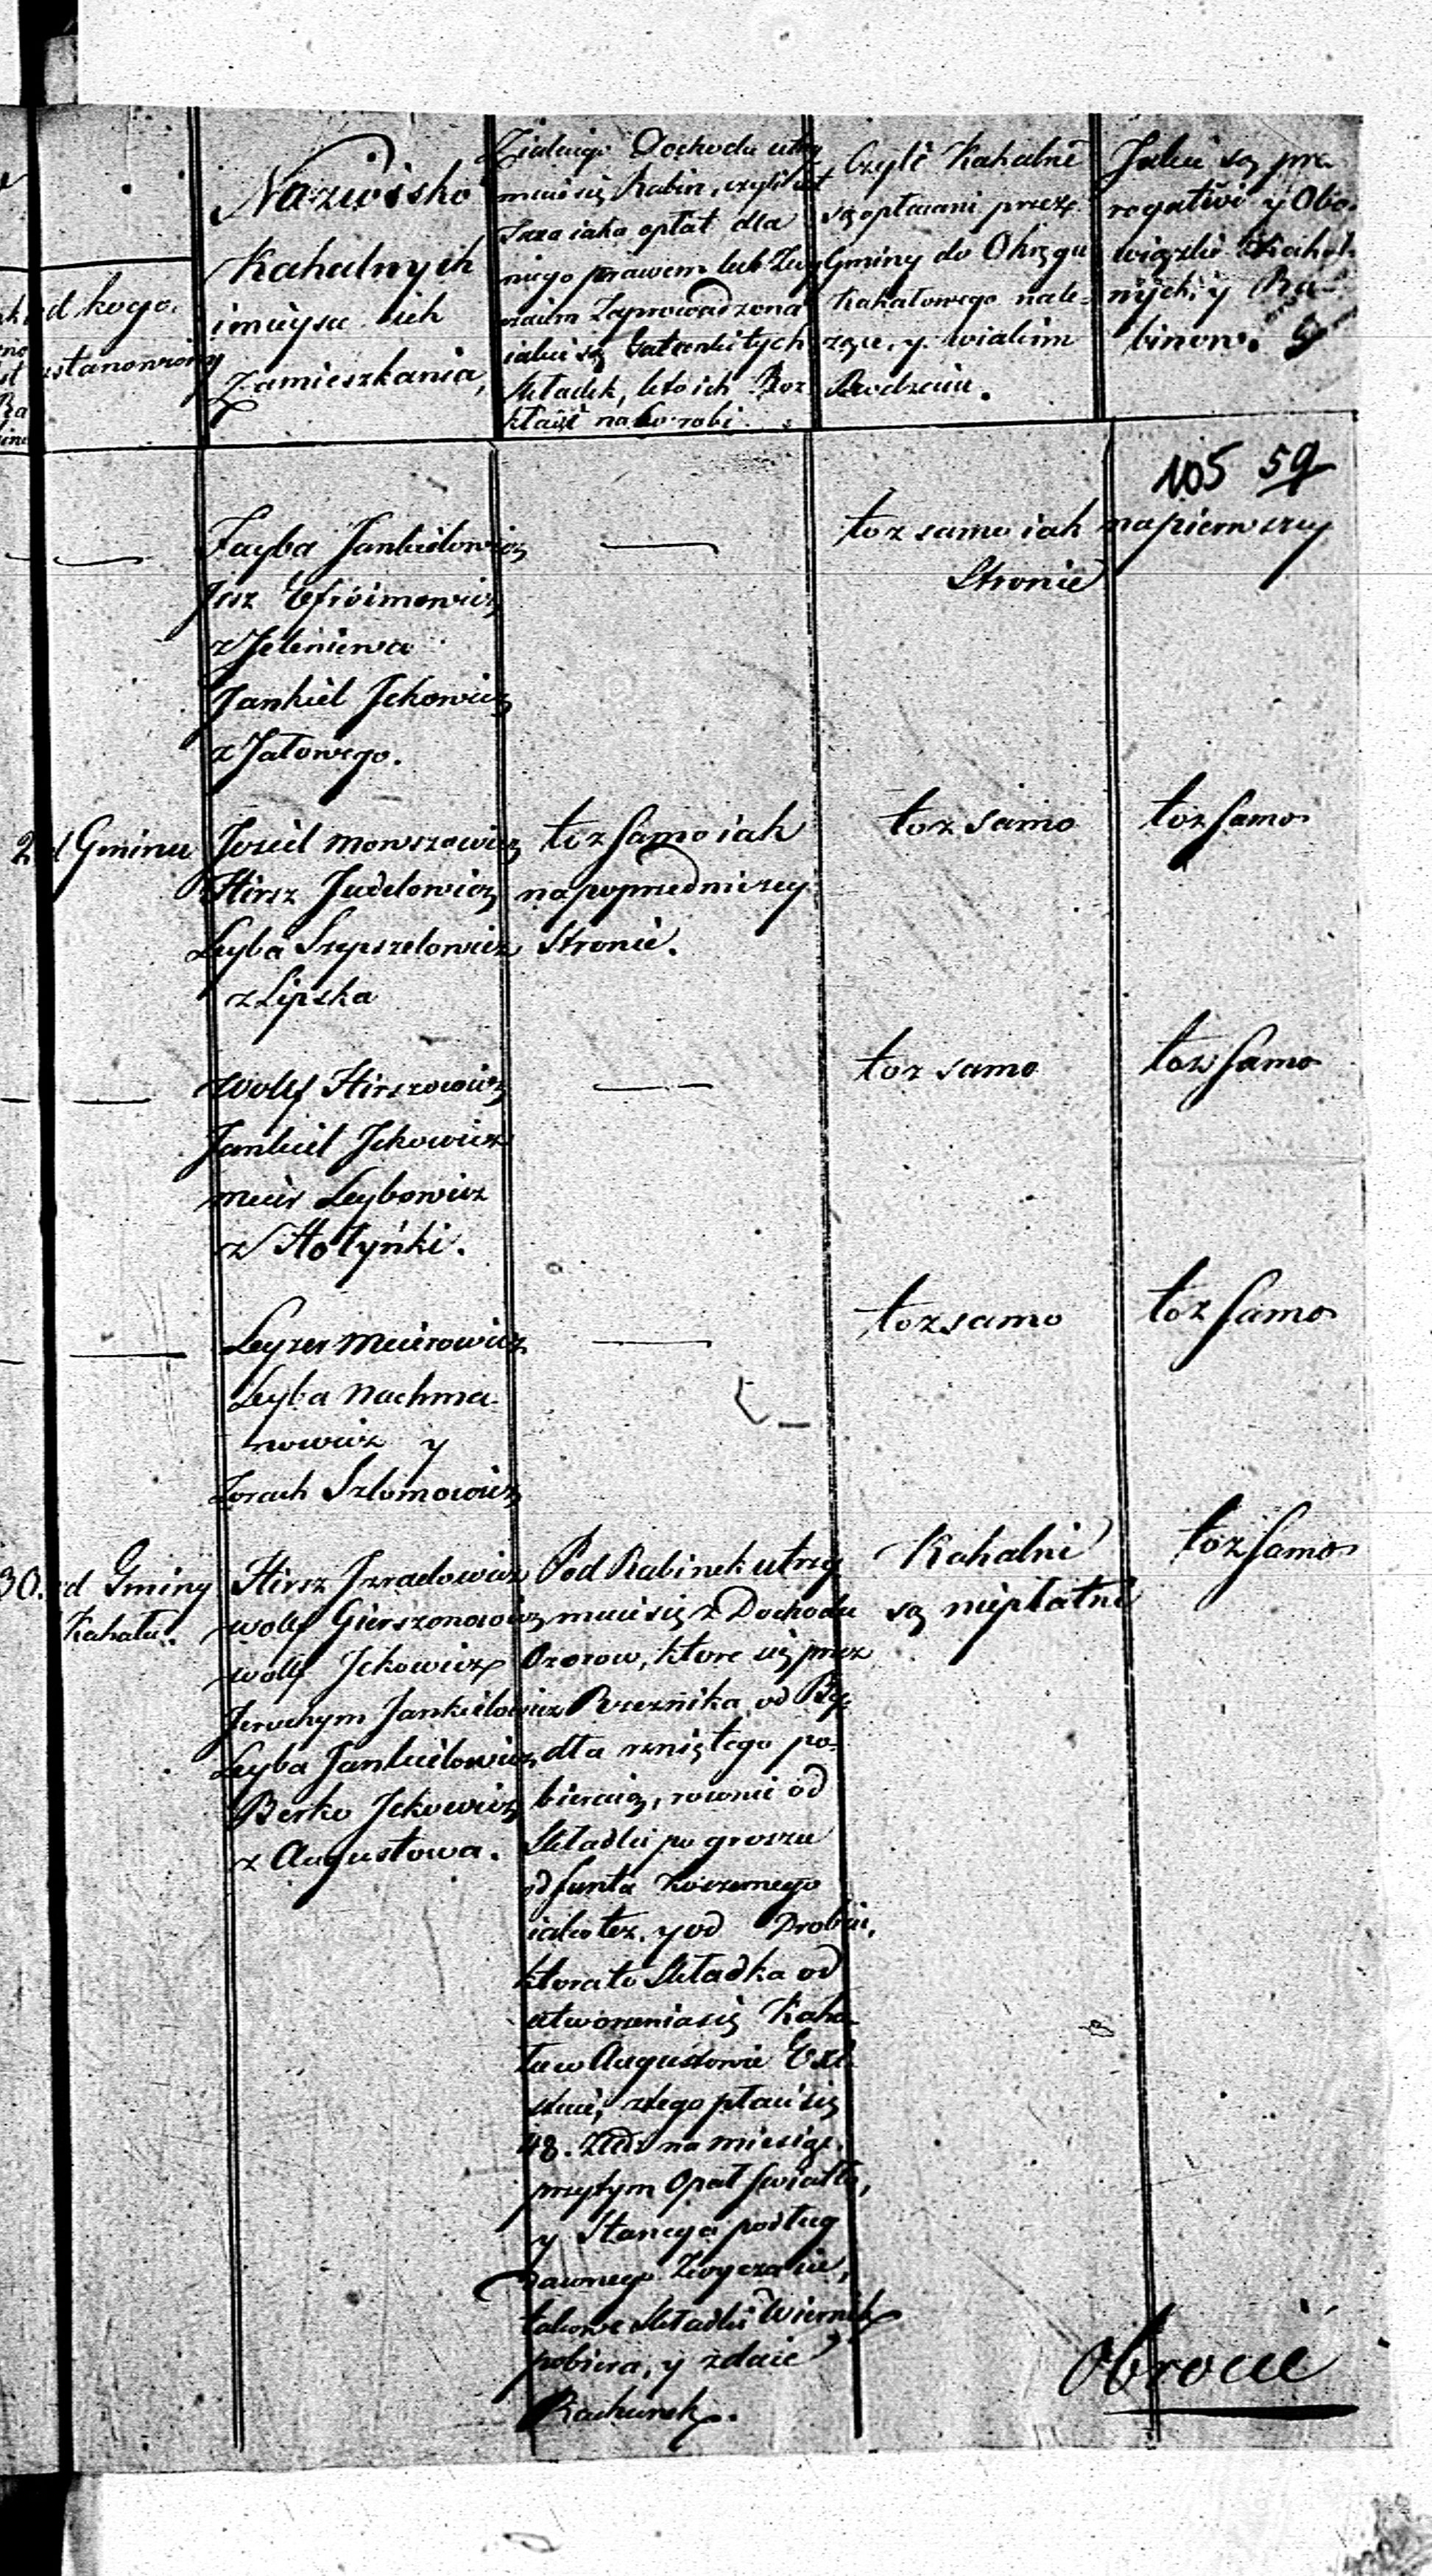 od kogo.
ustanowiony
Nazwisko
Kahalnych
i mieysce ich
Zamieszkania,
Z iakiego Dochodu utrzy
muie się Rabin, czyli iest
iaka opłat dla
niego prawem lub Zwy
czaiem Zaprowadzona
iakie są Gatunki tych
Składek, kto ich Roz
kład na to robi
Czyli Kahalni
są opłacani przez
Gminy do Okręgu
Kahałowego nale-
zące, y w iakim
Rodzaiu.
Jakie są pre
rogatiwi y Obo-
wiązki Kahal
nych, y Ra-
binow.
105 59
Jayba Jankielowicz
Jcsz Efroimowicz
z Jeleniewa
Jankiel Jckowicz
z Jałowego.
—
toz samo iak na pierwszey
Stronie
2
od Gminu
Josiel Mowszowicz
Hirsz Judelowicz
Leyba Szepszelowicz
z Lipska
toz samo iak
na poprzedniczey
Stronie.
toz samo
toz samo
Wolf Hirszowicz
Jankiel Jckowicz
Meier Leybowicz
z Hołynki.
—
toz samo
toz samo
Leyzer Meierowicz
Leyba Nachma-
nowicz y
Zorach Szlomowicz
—
toz samo
toz samo
30.
od Gminy
Kahału.
Hirsz Jzraelowicz
Wolf Gierszonowicz
Wolf Jckowicz
Jerochym Jankielowicz
Leyba Jankielowicz
Berko Jckowicz
z Augustowa.
Pod Rabinek utrzy
muie się z Dochodu
Ozorow, ktore się przez
Rzeznika, od By-
dła rzniętego po-
bieraią, rownie od
Składki po groszu
od funta koszernego
iako tez, y od Drobiu,
ktora to Składka od
utworzenia się Kaha
łu w Augustowie Exi
stuie, z tego płaci się
48. Złł: na miesiąc.
przytym Opał swiatło,
y Stancya podług
dawnego Zwyczaiu,
takowe Składki Wiernik
pobiera, y zdaie
Rachunek.
Kahalni
są niepłatni
toz samo
Obrocić